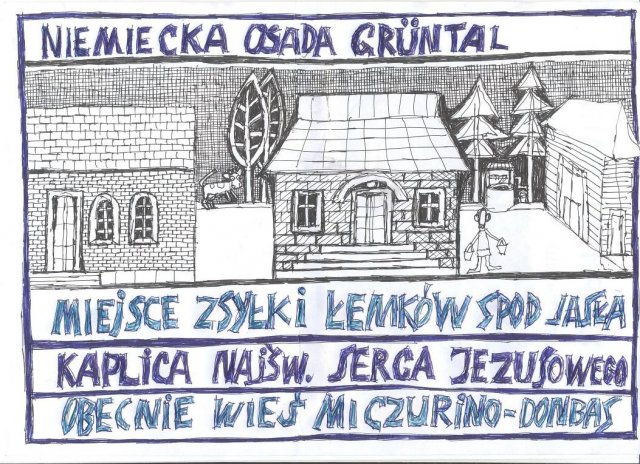 NIEMIECKA OSADA GRÜNTAL
MIEJSCE ZSYŁKI ŁEMKÓW SPOD JASŁA
KAPLICA NAJŚW. SERCA JEZUSOWEGO
OBECNIE WIEŚ MICZURINO-DONBAS